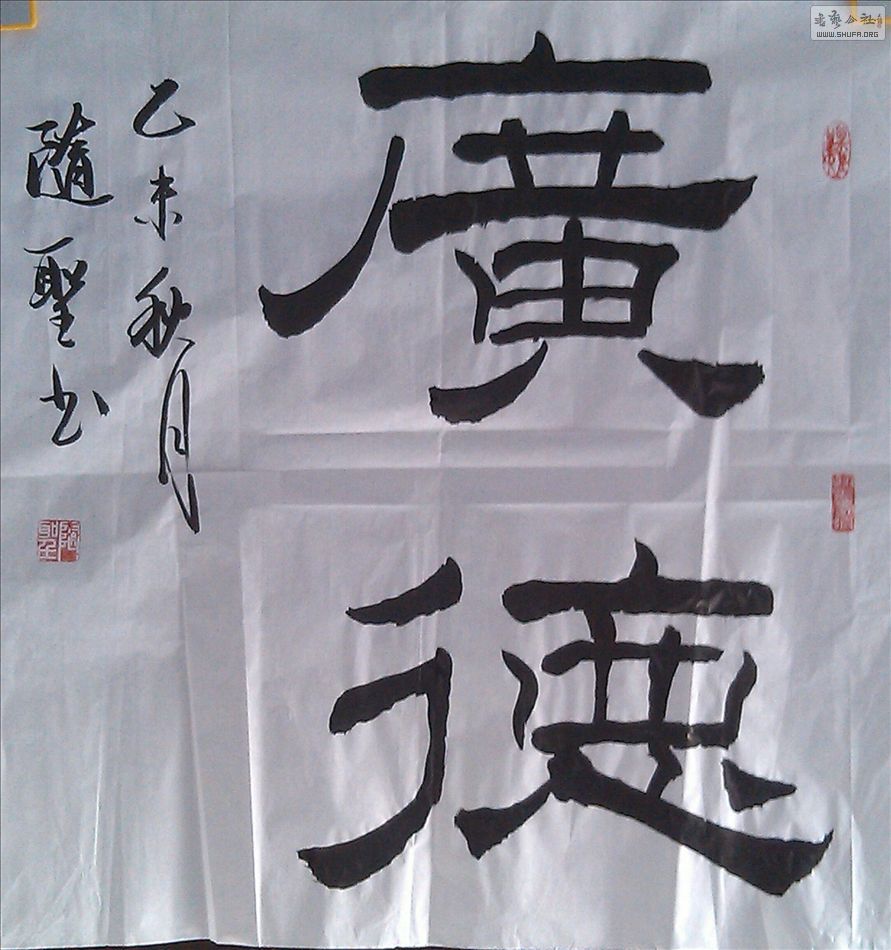 廣德
乙未秋月
隨聖书
书艺公社
WWW.SHUFA.ORG